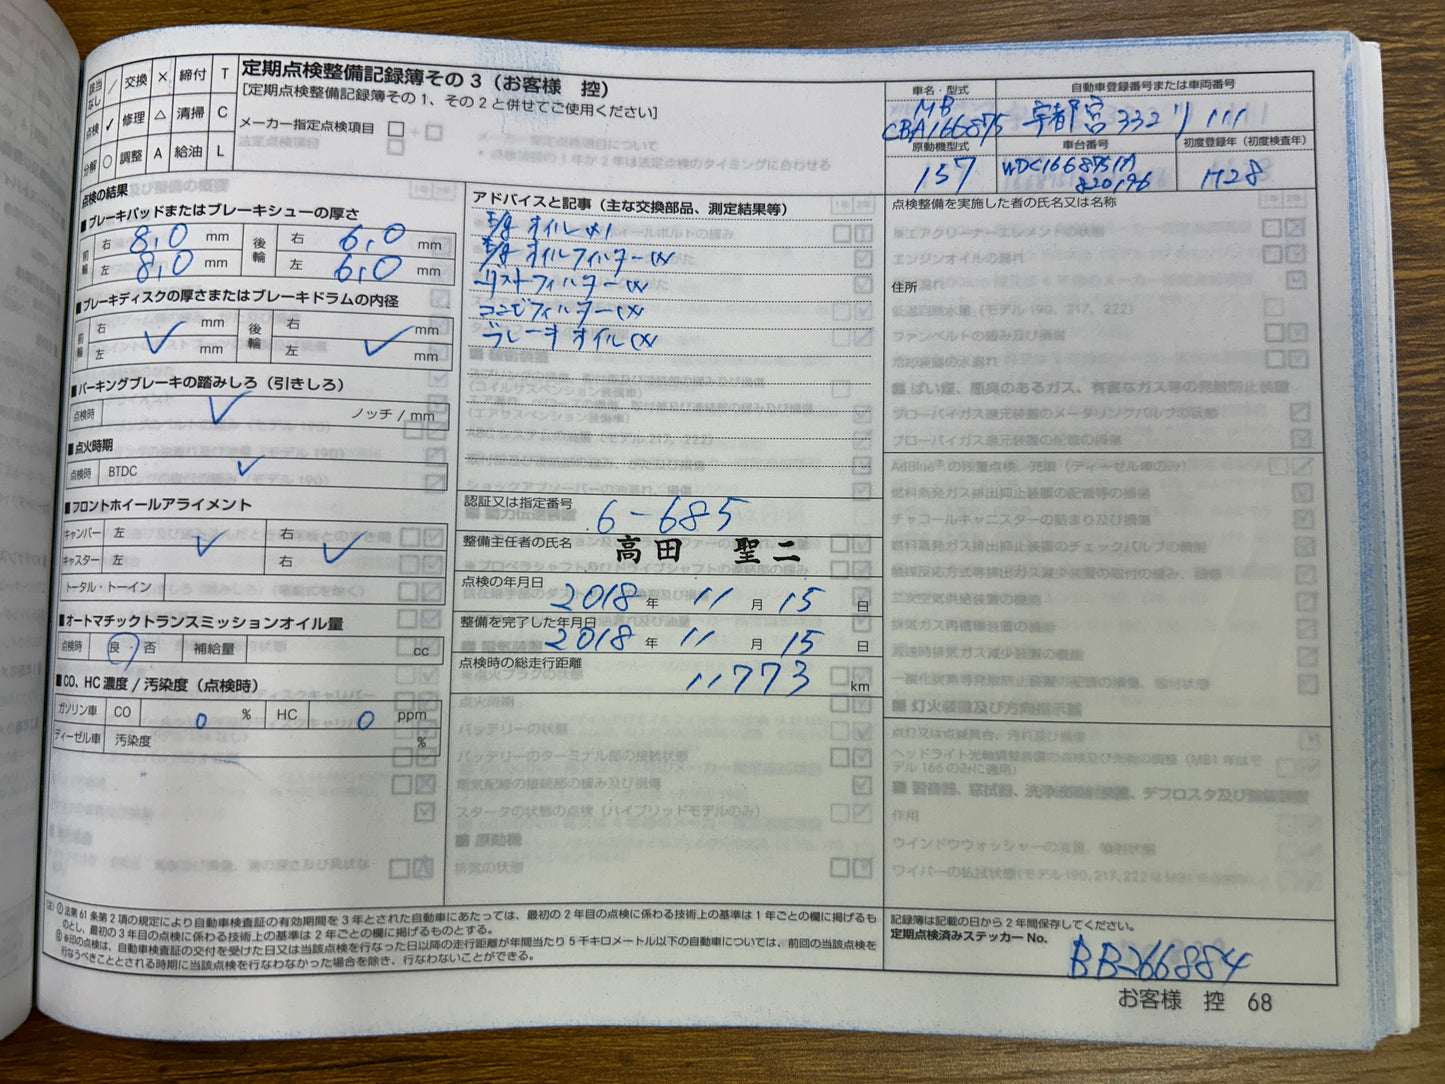 該当なし ／ 交換 × 締付 T
点検 ✓ 修理 △ 清掃 C
分解 ○ 調整 A 給油 L
定期点検整備記録簿その3（お客様 控）
［定期点検整備記録簿その1、その2と併せてご使用ください］
メーカー指定点検項目 □
車名・型式
MB
CBA166875
自動車登録番号または車両番号
宇都宮 332 リ 111
原動機型式
157
車台番号
WDC1668751A
820196
初度登録年（初度検査年）
H28
点検の結果
■ブレーキパッドまたはブレーキシューの厚さ
前輪 右 8.0 mm 後輪 右 6.0 mm
左 8.0 mm 左 6.0 mm
■ブレーキディスクの厚さまたはブレーキドラムの内径
前輪 右 mm 後輪 右 mm
左 ✓ mm 左 ✓ mm
■パーキングブレーキの踏みしろ（引きしろ）
点検時 ✓ ノッチ / mm
■点火時期
点検時 BTDC ✓
■フロントホイールアライメント
キャンバー 左 右
キャスター 左 ✓ 右 ✓
トータル・トーイン
■オートマチックトランスミッションオイル量
点検時 良・否 補給量 cc
■CO、HC濃度 / 汚染度（点検時）
ガソリン車 CO 0 % HC 0 ppm
ディーゼル車 汚染度 %
アドバイスと記事（主な交換部品、測定結果等）
E/g オイル(×)
E/g オイルフィルター(×)
ダストフィルター(×)
コンビフィルター(×)
ブレーキオイル(×)
認証又は指定番号
6-685
整備主任者の氏名
高田 聖二
点検の年月日
2018 年 11 月 15 日
整備を完了した年月日
2018 年 11 月 15 日
点検時の総走行距離
11773 km
点検整備を実施した者の氏名又は名称
住所
(注) ① 法第61条第2項の規定により自動車検査証の有効期間を3年とされた自動車にあたっては、最初の2年目の点検に係わる技術上の基準は1年ごとの欄に掲げるも
のとし、最初の3年目の点検に係わる技術上の基準は2年ごとの欄に掲げるものとする。
② ※印の点検は、自動車検査証の交付を受けた日又は当該点検を行なった日以降の走行距離が年間当たり5千キロメートル以下の自動車については、前回の当該点検を
行なうべきこととされる時期に当該点検を行なわなかった場合を除き、行なわないことができる。
記録簿は記載の日から2年間保存してください。
定期点検済みステッカーNo.
BB266884
お客様 控 68